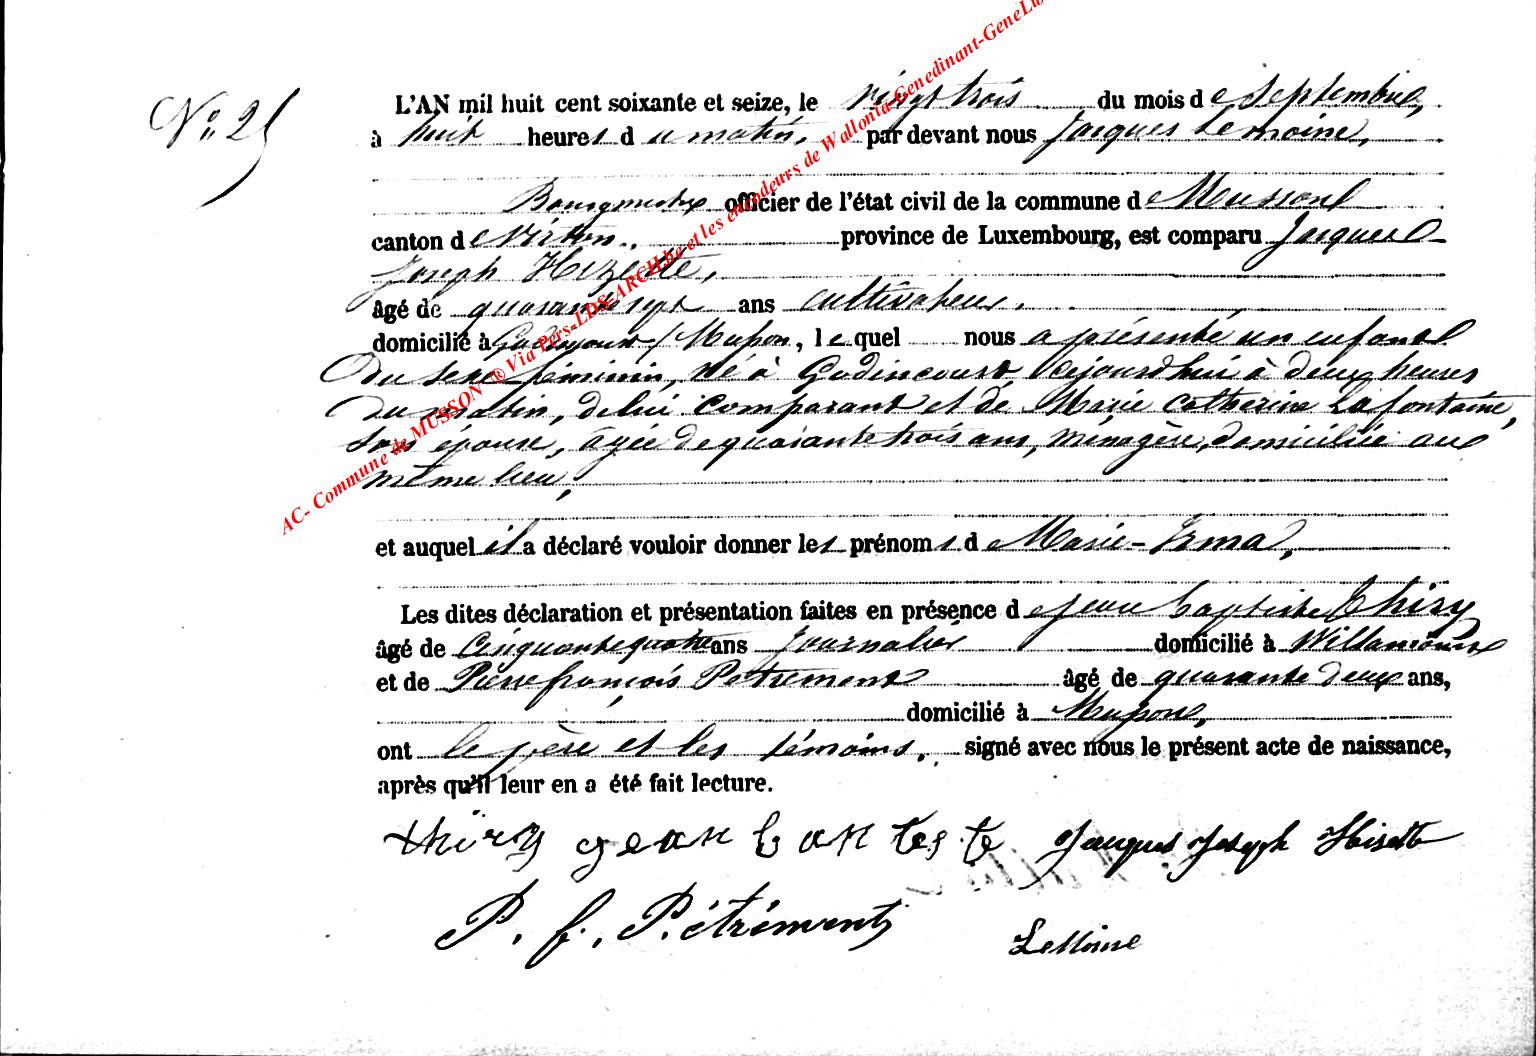 N° 25
L'AN mil huit cent soixante et seize, le vingt trois du mois de septembre,
à huit heures du matin, par devant nous Jacques Lemoine,
Bourgmestre officier de l'état civil de la commune de Musson
canton de Virton, province de Luxembourg, est comparu Jacques
Joseph Hizette,
âgé de quarante sept ans cultivateur,
domicilié à Godincourt / Musson, lequel nous a présenté un enfant
du sexe féminin, né à Godincourt, cejourd'hui à deux heures
du matin, de lui comparant et de Marie Catherine Lafontaine,
son épouse, âgée de quarante trois ans, ménagère, domiciliée au
même lieu,
et auquel il a déclaré vouloir donner les prénoms de Marie-Irma,
Les dites déclaration et présentation faites en présence de Jean baptiste Thiry
âgé de Cinquante quatre ans journalier domicilié à Willancourt
et de Pierre françois Petrement âgé de quarante deux ans,
domicilié à Musson,
ont le père et les témoins, signé avec nous le présent acte de naissance,
après qu'il leur en a été fait lecture.
thiry jean batteste Jacques Joseph Hisette
P. f. Pétrément
Lemoine
AC- Commune de MUSSON ® Via Pers-LDS-ARCH.be et les encodeurs de Wallonia-Genedinant-GeneLux